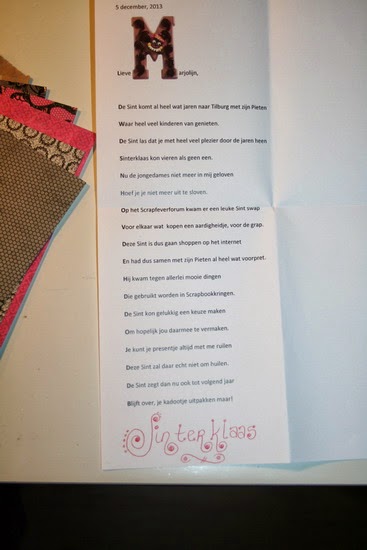 5 december, 2013
Lieve Marjolijn,
De Sint komt al heel wat jaren naar Tilburg met zijn Pieten
Waar heel veel kinderen van genieten.
De Sint las dat je met heel veel plezier door de jaren heen
Sinterklaas kon vieren als geen een.
Nu de jongedames niet meer in mij geloven
Hoef je je niet meer uit te sloven.
Op het Scrapfeverforum kwam er een leuke Sint swap
Voor elkaar wat kopen een aardigheidje, voor de grap.
Deze Sint is dus gaan shoppen op het internet
En had dus samen met zijn Pieten al heel wat voorpret.
Hij kwam tegen allerlei mooie dingen
Die gebruikt worden in Scrapbookkringen.
De Sint kon gelukkig een keuze maken
Om hopelijk jou daarmee te vermaken.
Je kunt je presentje altijd met me ruilen
Deze Sint zal daar echt niet om huilen.
De Sint zegt dan nu ook tot volgend jaar
Blijft over, je kadootje uitpakken maar!
Sinterklaas